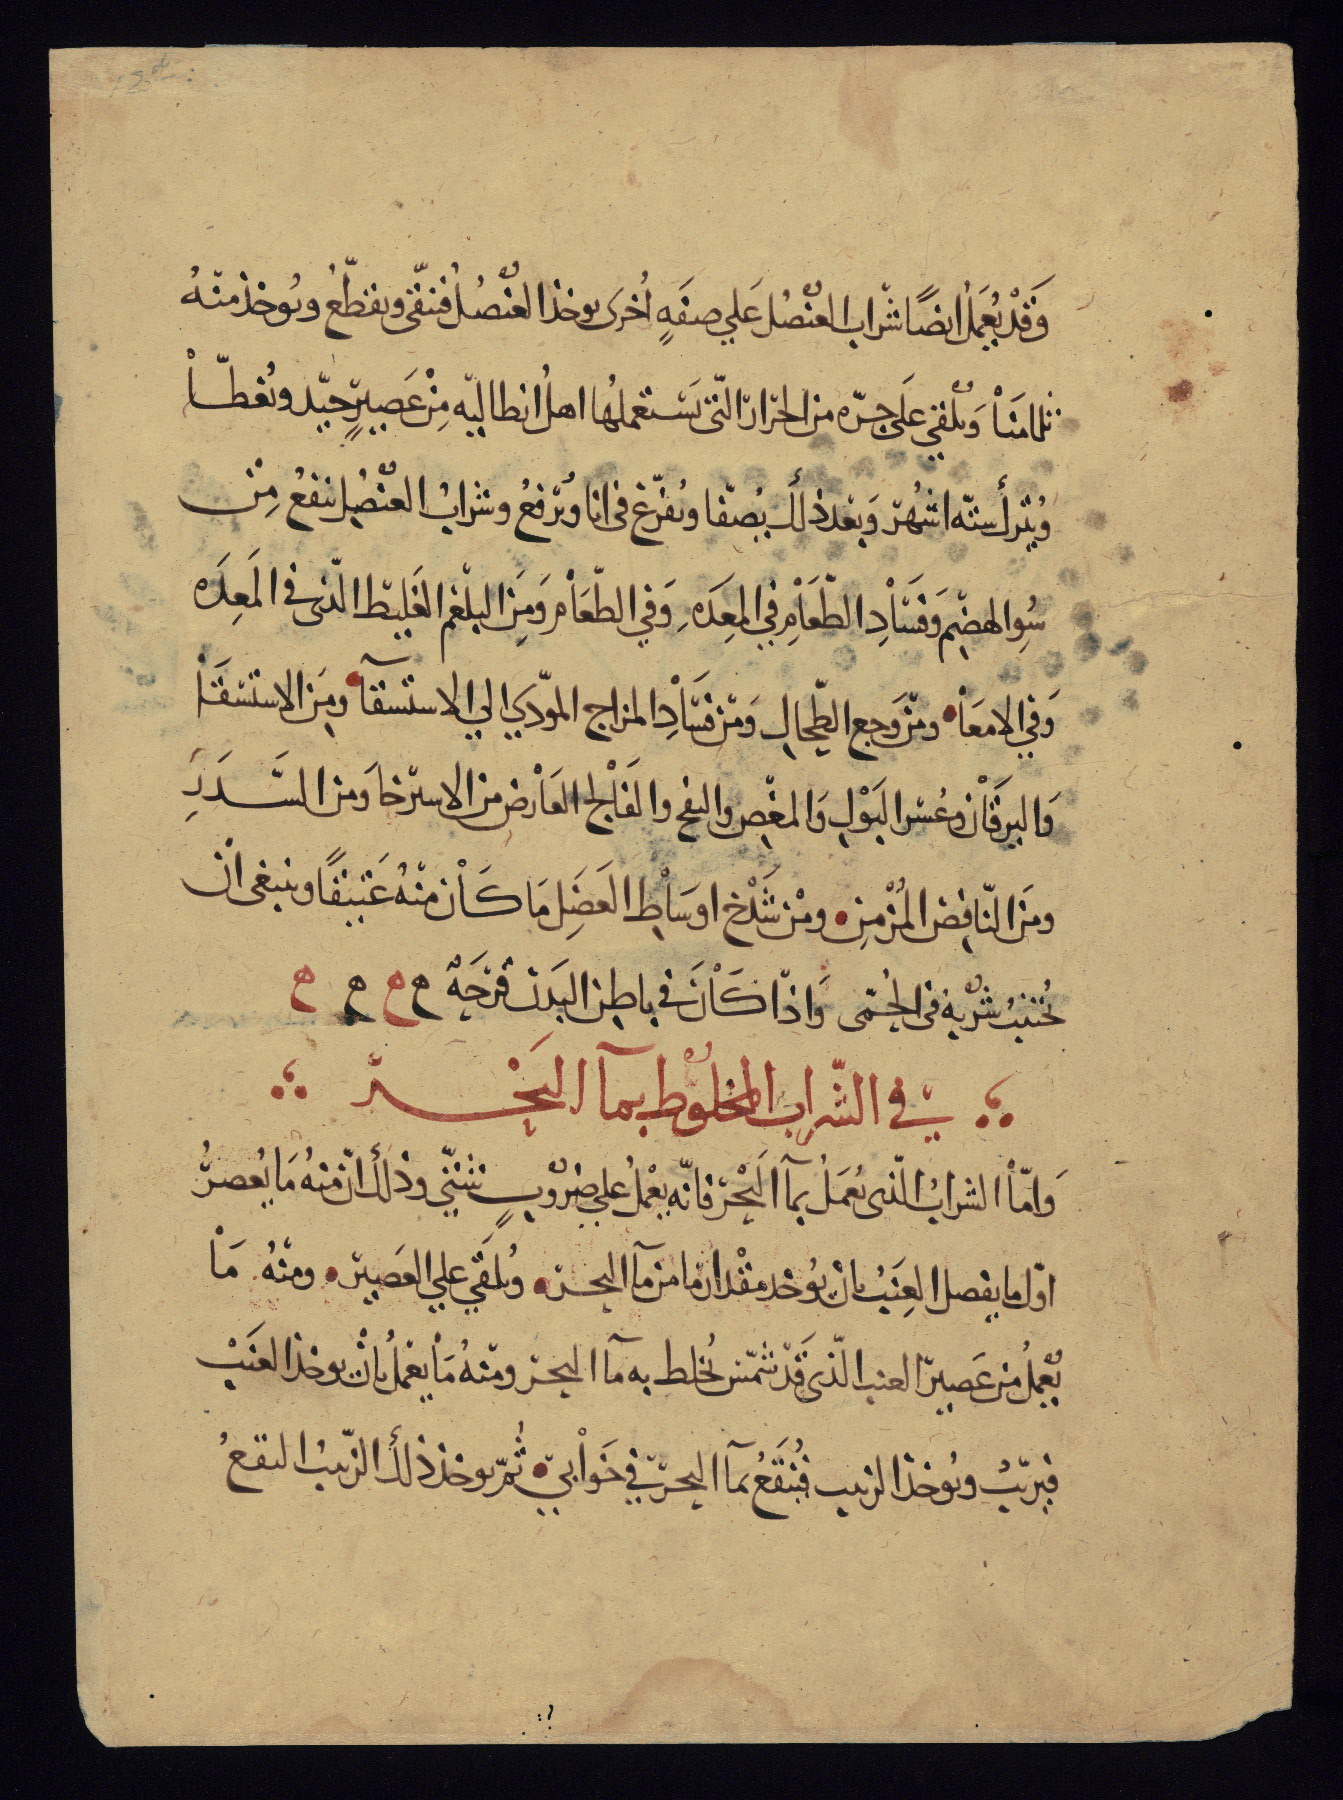 وَقَدْ يُعمَلُ ايضًا شّراب العنْصُل عَلي صفَهٍ اُخرى يوخذ العنْصُل فُنقّى ويقطّعُ ويُوخذ منهُ
ثلثا مَنَاْ وَيُلْقي عَلَى جرّه من الجرار الّتى يَستعملهُا اهلُ انطاليه مِنْ عَصيرٍ جيّد وتُغطّاْ
وُيترك ستّه اشهُر وَبَعد ذلك يُصّفا ويُفرّغ فى انا ويُرفعُ وشرابُ العنْصُل ينفعُ مِنْ
سُوِا الهضِم وَفَسَاْدِ الطّعَاْمِ في المعِدَهِ وَفي الطّعَاْمِ وَمِنَ البلْغم الغَليظ الّذى فى المَعِدَه
وَفي الامعَاْ ومنْ وَجع الطّحالِ وَمنْ فَسَاْدِ المزاج المؤّدي الي الاستسقآ ومِنَ الاستسْقَاْ
وَاليرقَاْن وعُسْرِ البَوْلِ وَالمغْصِ والنفخ والفَاْلج العَاْرض من الاسترْخا وَمن السَّدَرِ
ومَن النّافِض المُزْمِنِ ومْن شَدْخ اوسَاْطِ العَضَلِ مَا كَاْنَ منْهُ عَتيقًا وينبغى انْ
يُجتنبُ شُرْبهُ فى الحُمّى وَاذا كَاْنَ في باطِن البَدن قرْحَهٌ ه ه ه ه
فِي الشّراب المخلُوط بمآ البَحْر
وَامّاْ الشرابُ الّذى يُعمَلُ بمآ البَحْر فانّه يعْملُ علي ضُرُوبٍ شتيّ وذلك انّ منهُ مَا يُعصرُ
اوّل ما يفصل العِنَبُ بانْ يُوخذ مقْدار ما من مآ البحر ويُلقَي علي العَصير ومنْهُ مَاْ
يُعْمِلُ من عَصير العنب الّذى قَدْ شمّس يُخلط به مآ البحر ومنهُ مَاْ يعْملُ بانْ يوخذ العنَبْ
فيزبّبُ ويُوخذ الزبيب فُينقَعُ بمآ البحر في خَوَاْبيّ ثُمّ يوخذ ذلك الزّبيبُ النقعُ